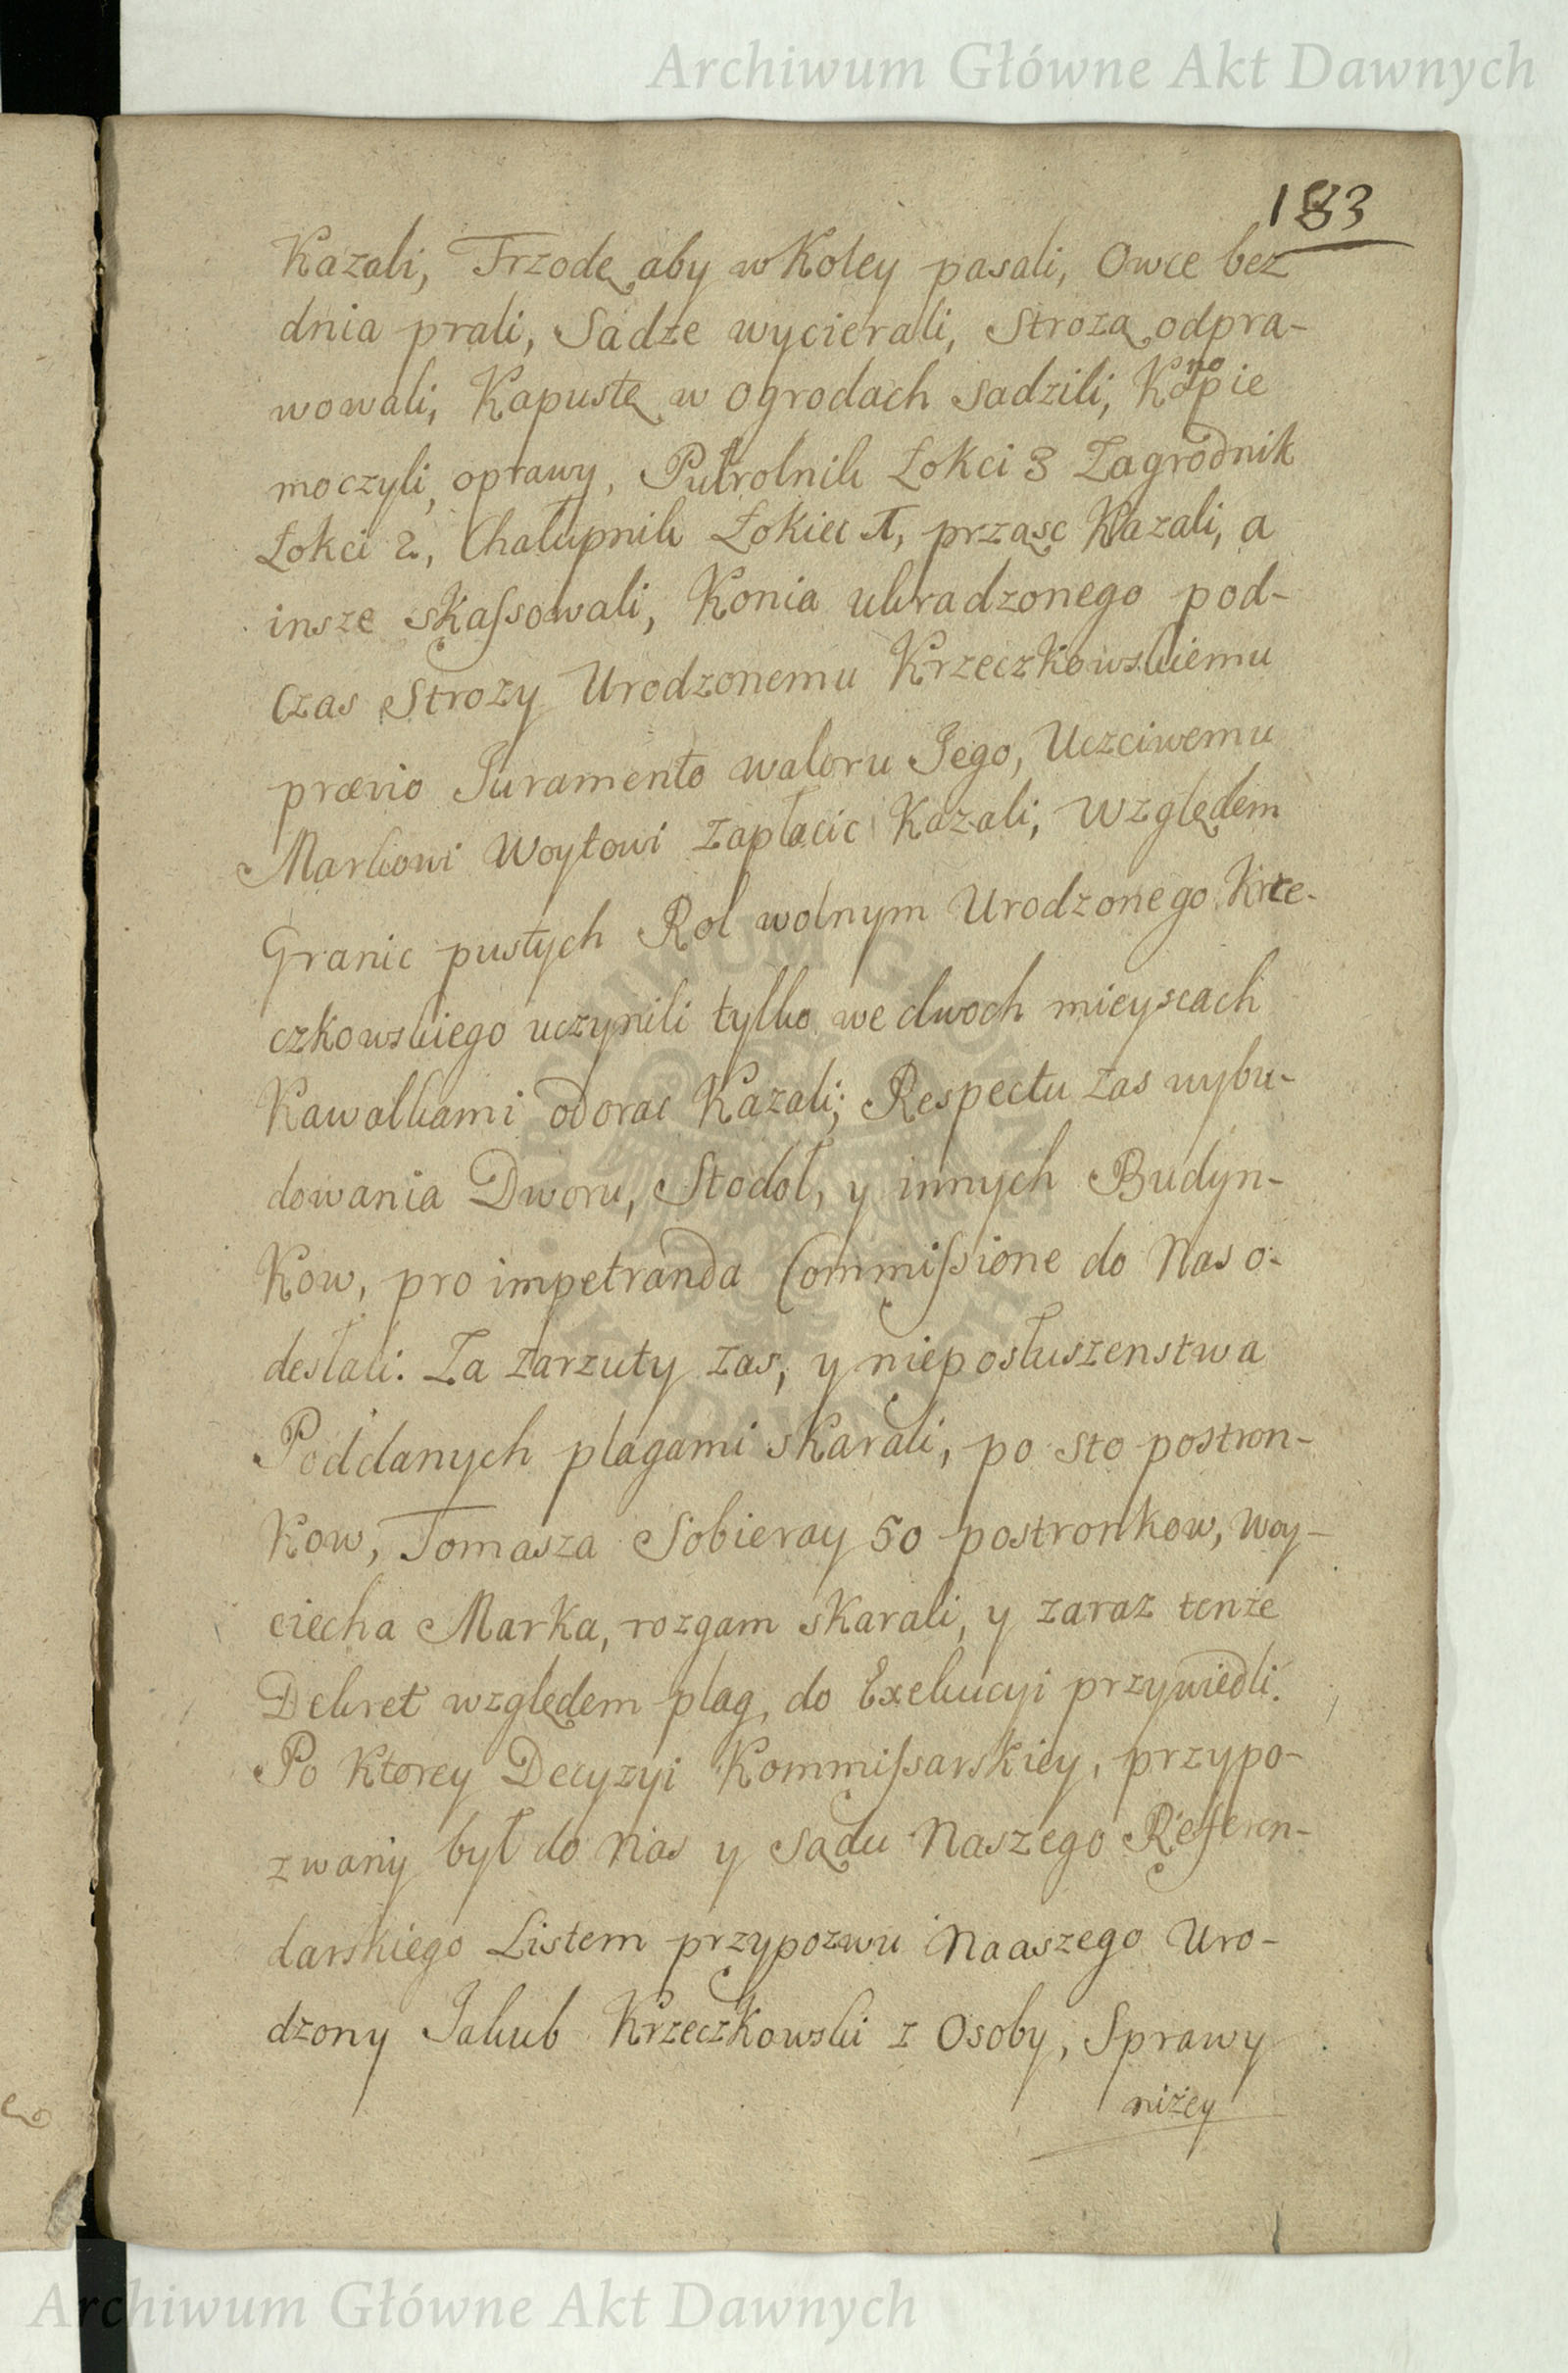 Archiwum Główne Akt Dawnych
183
Kazali, Trzodę aby w Koley pasali, Owce bez
dnia prali, Sadze wycierali, Strożą odpra-
wowali, Kapustę w ogrodach sadzili, Konopie
moczyli, oprawy, Pułrolnik Łokci 3 Zagrodnik
Łokci 2, Chałupnik Łokiec 1, prząsc Kazali, a
insze skassowali, Konia ukradzonego pod-
czas Stroży Urodzonemu Krzeczkowskiemu
prævio Juramento waloru Jego, Uczciwemu
Markowi Woytowi zapłacic Kazali, Względem
Granic pustych Rol wolnym Urodzonego Krze-
czkowskiego uczynili tylko we dwoch mieyscach
Kawałkami odorac Kazali; Respectu zas wybu-
dowania Dworu, Stodoł, y innych Budyn-
Kow, pro impetranda Commissione do Nas o-
desłali. Za zarzuty zas, y nieposłuszenstwa
Poddanych plagami skarali, po sto postron-
Kow, Tomasza Sobieray 50 postronkow, Woy-
ciecha Marka, rozgam skarali, y zaraz tenże
Dekret względem plag, do Exekucyi przywiedli.
Po Ktorey Decyzyi Kommissarskiey, przypo-
zwany był do Nas y Sądu Naszego Referen-
darskiego Listem przypozwu Naaszego Uro-
dzony Jakub Krzeczkowski z Osoby, Sprawy
niżey
Archiwum Główne Akt Dawnych